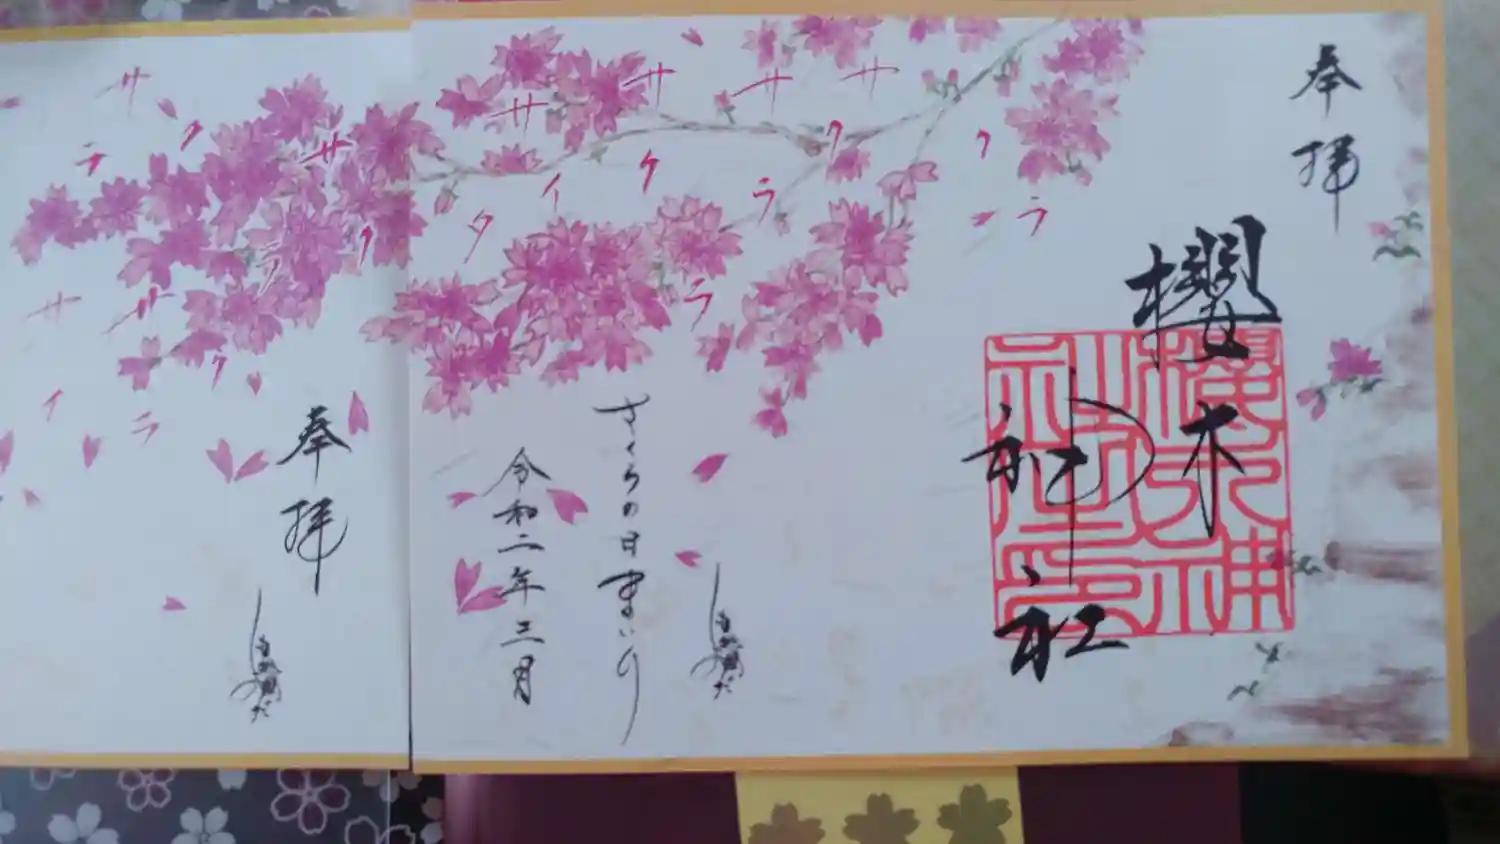 奉拝
櫻木神社
櫻木神社印
さくらの日まいり
令和二年三月
奉拝
サ
サ
サ
サ
ク
ク
ク
ラ
ラ
ラ
イ
タ
サ
サ
サ
サ
ク
ク
ク
ラ
ラ
ラ
イ